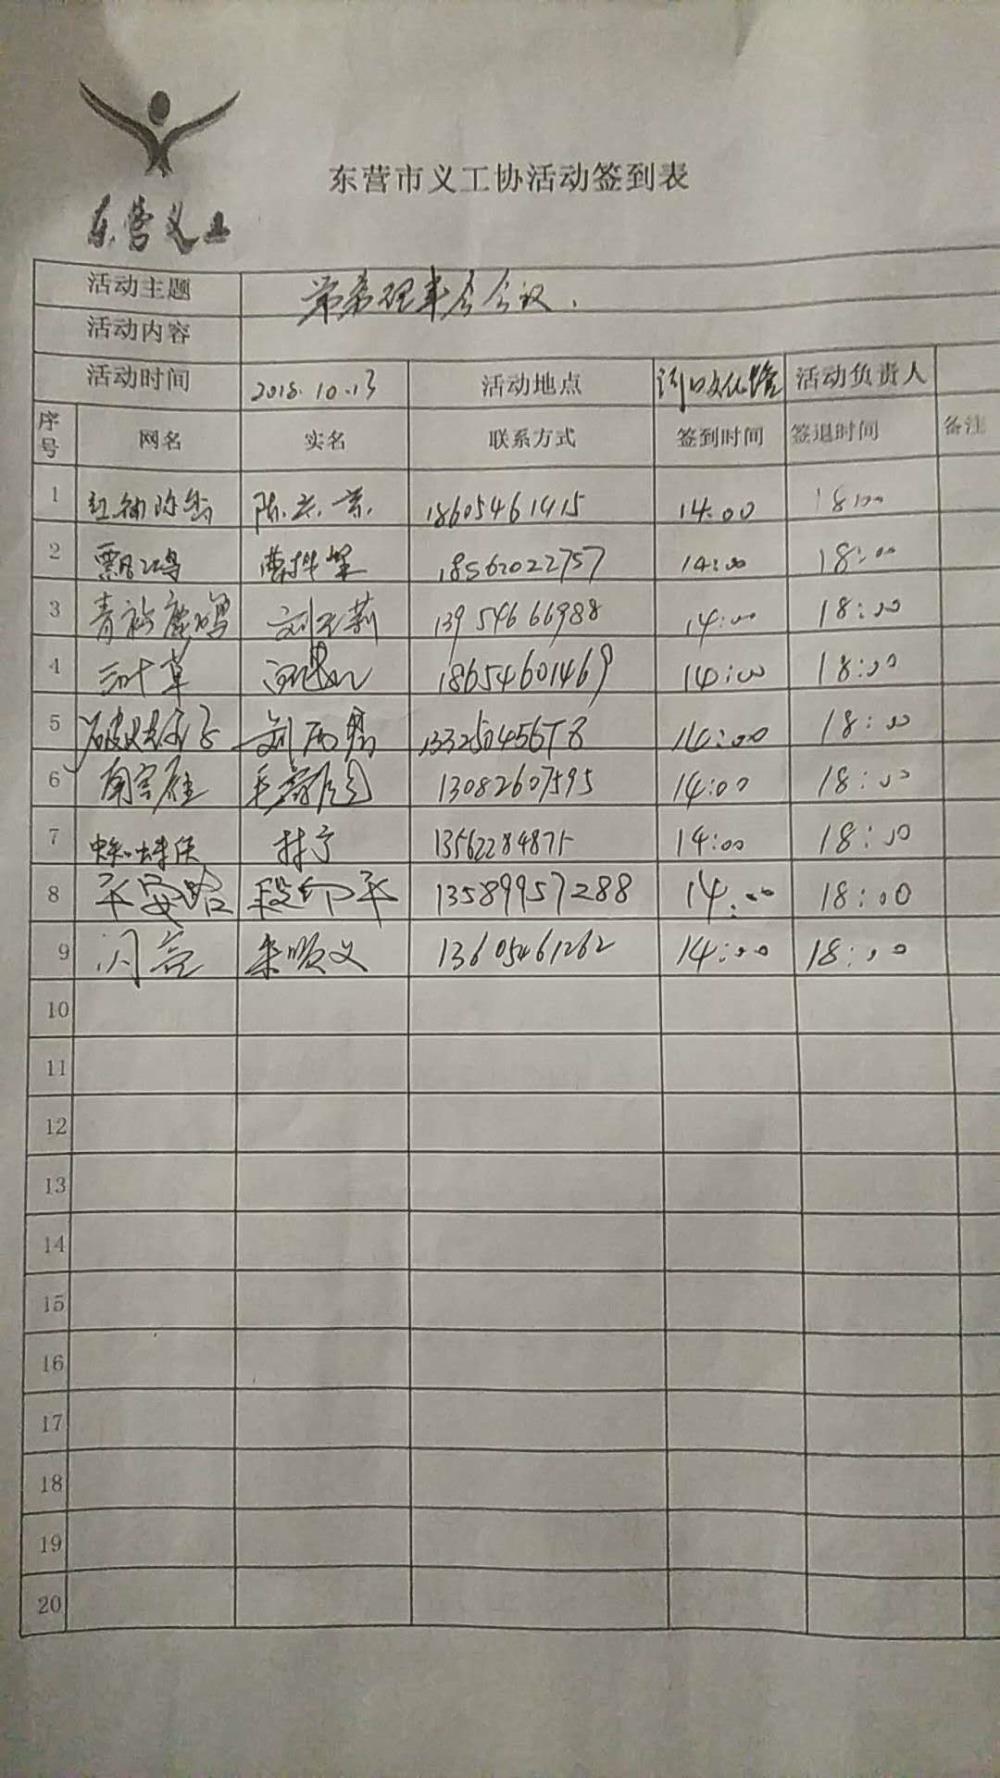 东营义工
东营市义工协活动签到表
活动主题 常务理事会会议.
活动内容
活动时间 2018.10.13 活动地点 河口文化馆 活动负责人
序号 网名 实名 联系方式 签到时间 签退时间 备注
1 陈 18605461415 14:00 18:00
2 飘鸿 18562022757 14:00 18:00
3 青裕鹿鸣 刘玉莉 13954666988 14:00 18:00
4 三叶草 18654601469 14:00 18:00
5 刘 14:00 18:00
6 南宫雁 13082607595 14:00 18:00
7 蜘蛛侠 林宁 13562284875 14:00 18:00
8 平安路 段印平 13589957288 14:00 18:00
9 闪亮 朱顺义 13605461262 14:00 18:00
10
11
12
13
14
15
16
17
18
19
20